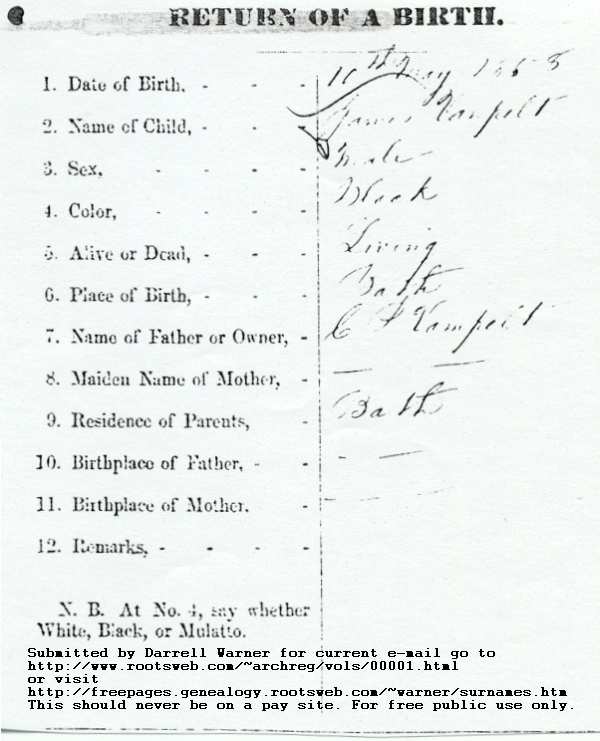 RETURN OF A BIRTH.
1. Date of Birth, - - - 10th May 1858
2. Name of Child, - - - James Vanpelt
3. Sex, - - - - Male
4. Color, - - - - Black
5. Alive or Dead, - - - Living
6. Place of Birth, - - - Bath
7. Name of Father or Owner, - C Vanpelt
8. Maiden Name of Mother, - — —
9. Residence of Parents, - Bath
10. Birthplace of Father, - - - —
11. Birthplace of Mother. - - —
12. Remarks, - - - -
N. B. At No. 4, say whether
White, Black, or Mulatto.
Submitted by Darrell Warner for current e-mail go to
http://www.rootsweb.com/~archreg/vols/00001.html
or visit
http://freepages.genealogy.rootsweb.com/~warner/surnames.htm
This should never be on a pay site. For free public use only.